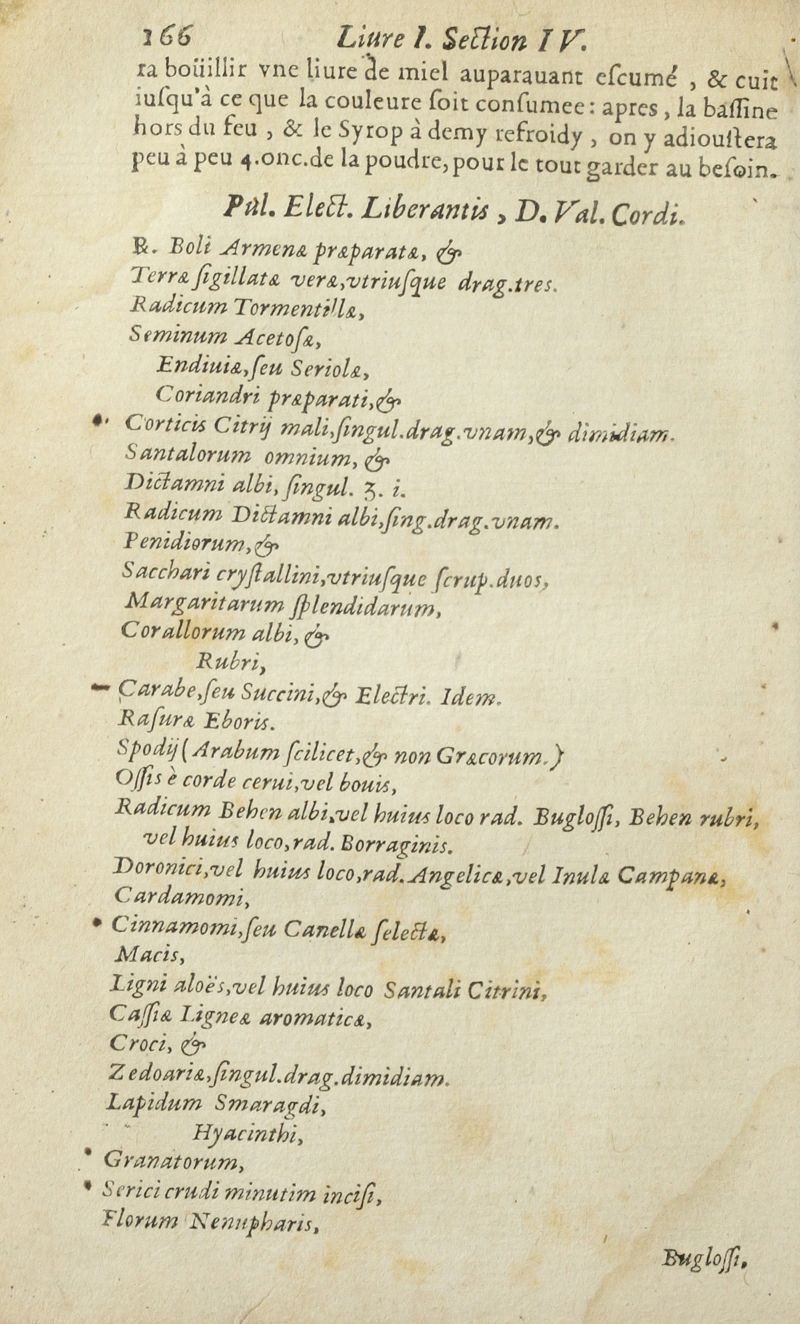 166 Liure I. Section IV.
ra boüillir vne liure de miel auparauant escumé , & cuit
iusqu'à ce que la couleure soit consumee : apres , la bassine
hors du feu , & le Syrop à demy refroidy , on y adioustera
peu à peu 4.onc.de la poudre, pour le tout garder au besoin.
Pul. Elect. Liberantis , D. Val. Cordi.
℞. Boli Armenæ præparatæ, &
Terræ sigillatæ veræ,vtriusque drag.tres.
Radicum Tormentillæ,
Seminum Acetosæ,
Endiuiæ,seu Seriolæ,
Coriandri præparati,&
Corticis Citrij mali,singul.drag.vnam,& dimidiam.
Santalorum omnium, &
Dictamni albi, singul. ʒ. i.
Radicum Dictamni albi,sing.drag.vnam.
Penidiorum,&
Sacchari crystallini,vtriusque scrup.duos,
Margaritarum splendidarum,
Corallorum albi, &
Rubri,
Carabe,seu Succini,& Electri. Idem.
Rasuræ Eboris.
Spodij (Arabum scilicet,& non Græcorum.)
Ossis è corde cerui,vel bouis,
Radicum Behen albi,vel huius loco rad. Buglossi, Behen rubri,
vel huius loco,rad. Borraginis.
Doronici,vel huius loco,rad.Angelicæ,vel Inulæ Campanæ,
Cardamomi,
Cinnamomi,seu Canellæ selectæ,
Macis,
Ligni aloës,vel huius loco Santali Citrini,
Cassiæ Ligneæ aromaticæ,
Croci, &
Zedoariæ,singul.drag.dimidiam.
Lapidum Smaragdi,
Hyacinthi,
Granatorum,
Serici crudi minutim incisi,
Florum Nenupharis,
Buglossi,